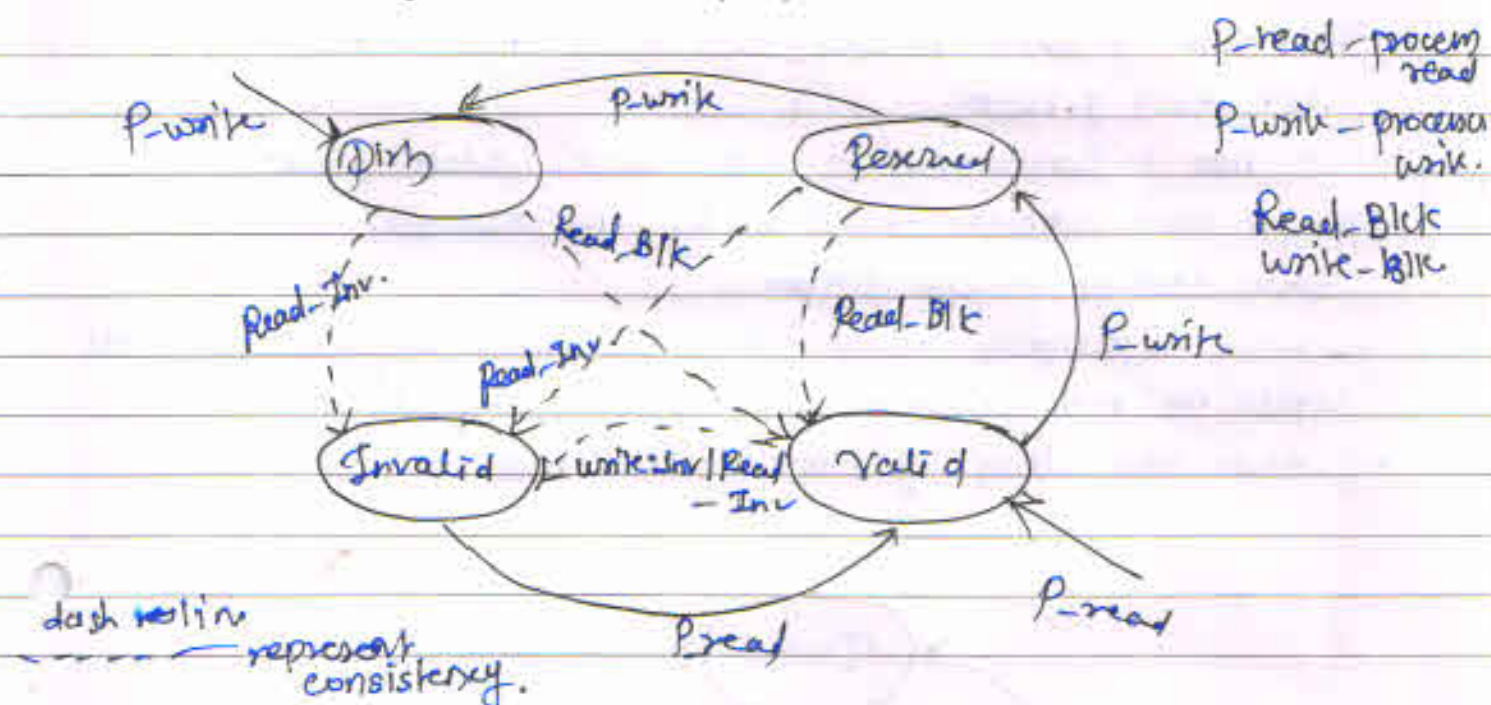 P_read - process
read
P_write - processor
write.
Read_Blck
write_Blk
P_write
P_write
Dirty
Reserved
Read_Blk
Read_Inv.
Read_Blk
Read_Inv
P_write
Invalid
write-Inv/Read
- Inv
Valid
P_read
P_read
dash line
represent
consistency.